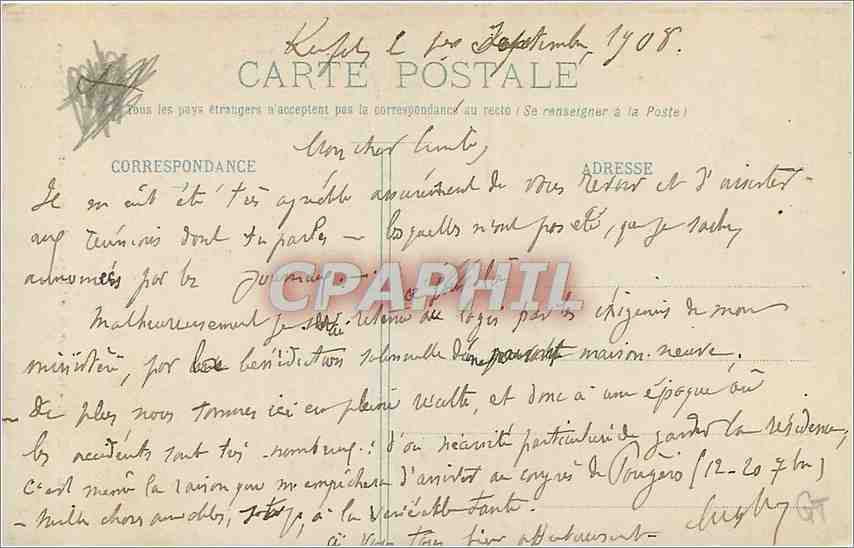 1er Septembre 1908.
CARTE POSTALE
Tous les pays étrangers n'acceptent pas la correspondance au recto (Se renseigner à la Poste)
Mon cher
CORRESPONDANCE
ADRESSE
Il m'eût été très agréable assurément de vous revoir et d'assister
aux réunions dont tu parles — lesquelles n'ont pas été, que je sache,
annoncées par les journaux.
CPAPHIL
Malheureusement je suis retenu au logis par les exigences de mon
ministère, par la bénédiction solennelle d'une maison neuve.
— De plus nous sommes ici en pleine récolte, et donc à une époque où
les accidents sont très nombreux : d'où nécessité particulière de garder la résidence;
c'est même la raison qui m'empêchera d'assister au congrès de (12-20 7bre)
— Mille choses aimables, à la vénérable tante.
à vous tous bien affectueusement —
GT